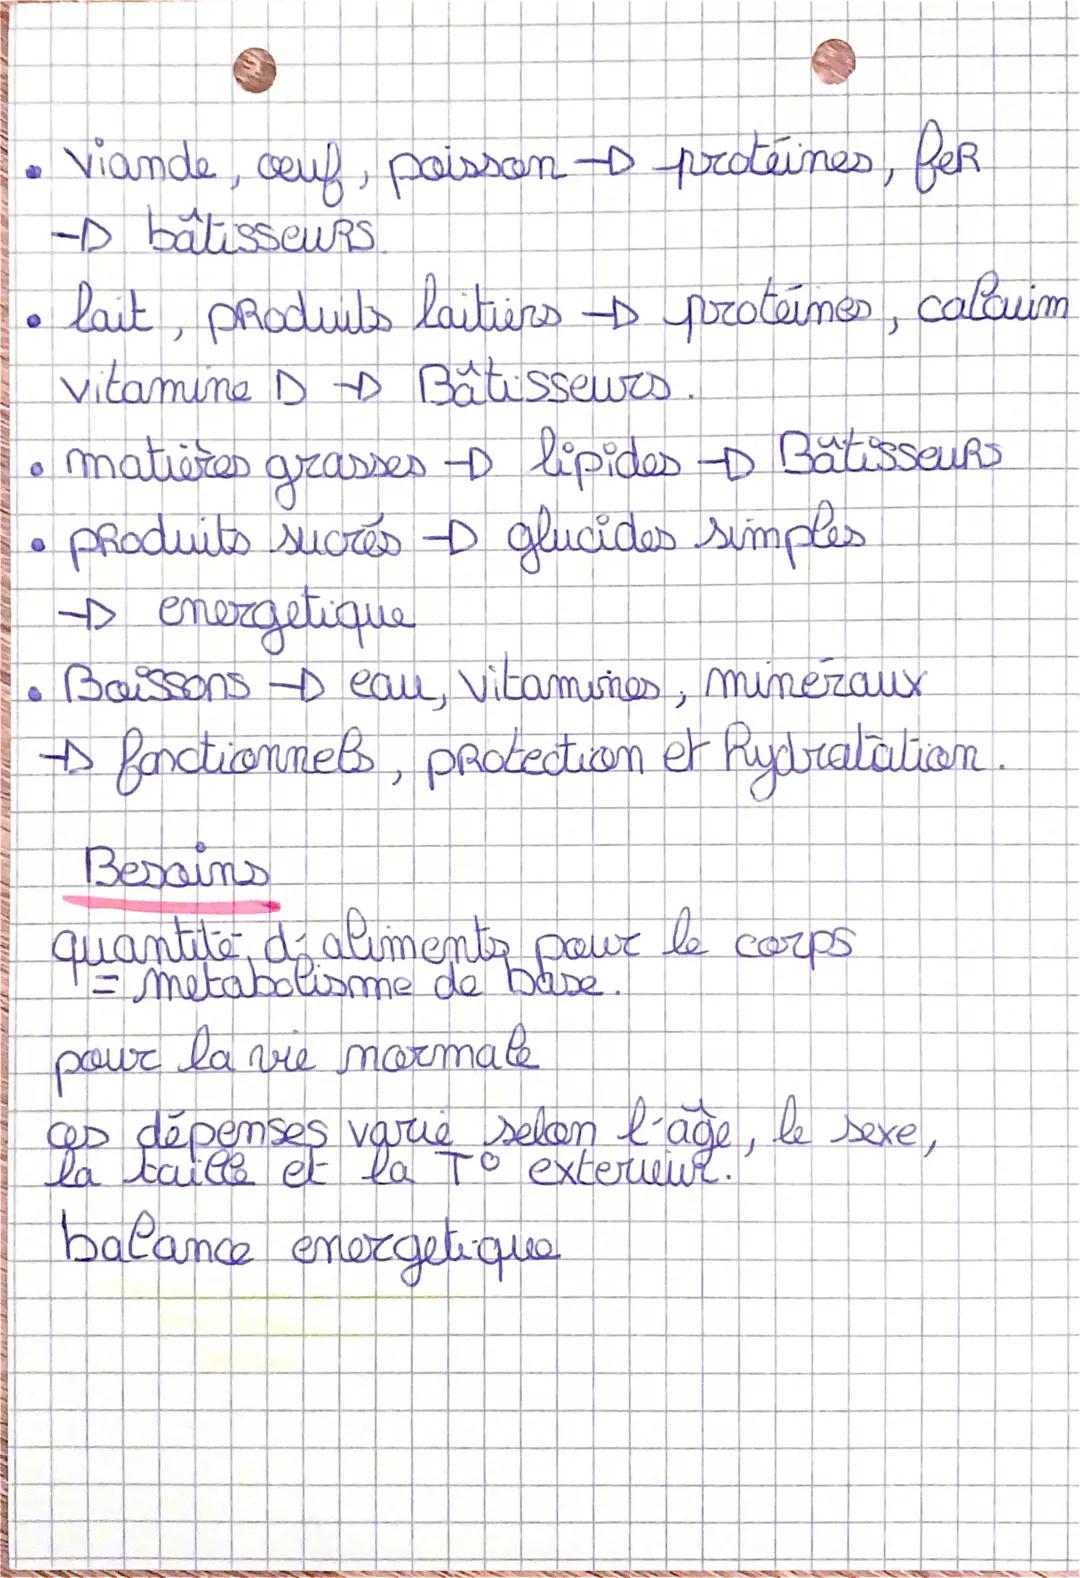 • viande, œuf, poisson → protéines, feR
→ bâtisseuRs.
• lait, pRoduits laitiers → protéines, calcuim
vitamine D → Bâtisseurs.
• matières grasses → lipides → BâtisseuRs
• pRoduits sucrés → glucides simples
→ energetique
• Boissons → eau, vitamines, minéraux
→ fonctionnels, pRotection et hydratation.
Besoins
quantité d'aliments pour le corps
= metabolisme de base.
pour la vie normale
ces dépenses varie selon l'âge, le sexe,
la taille et la T° exterieur.
balance energetique